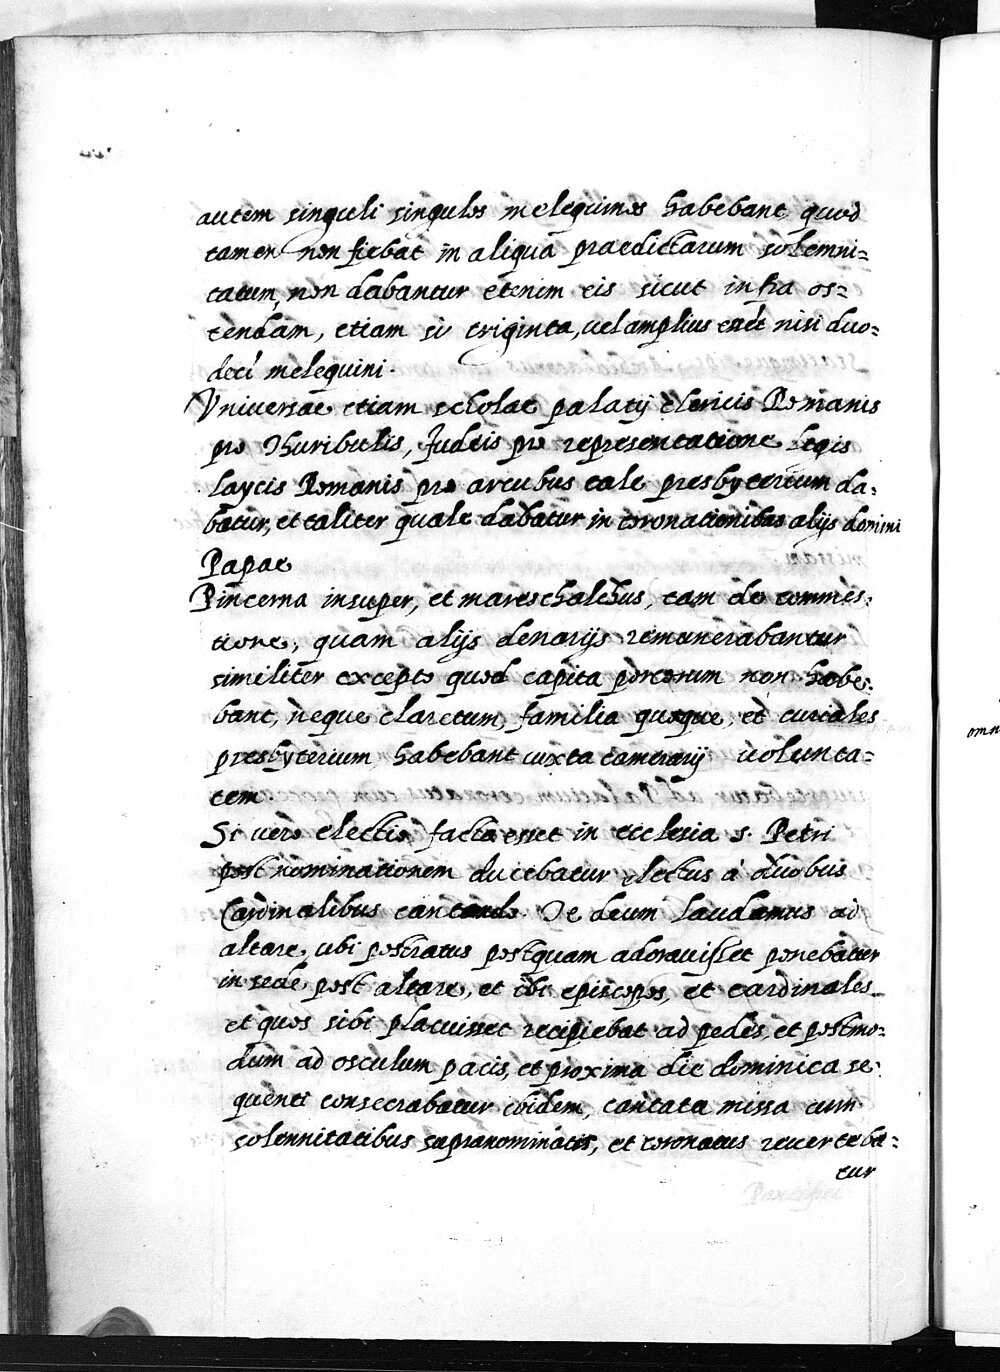 autem singuli singulos melequinos habebant, quod
tamen non fiebat in aliqua praedictarum solemni=
tatum, non dabantur etenim eis sicut infra os=
tendam, etiam si triginta, uel amplius essét nisi duo=
deci melequini.
Vniuersae etiam scholae palatij clericis Romanis
pro Thuribulis, Judeis pro representatione legis
laycis Romanis pro arcubus tale presbyterium da=
batur, et taliter quale dabatur in coronationibus alijs domini
Papae
Pincerna insuper, et mareschalchus, tam de commes=
tione, quam alijs denarijs remunerabantur
similiter excepto quod capita porcorum non habe=
bant, neque claretum, familia quoque, et curiales
presbyterium habebant iuxta camerarij uolunta=
tem
Si uero electio facta esset in ecclesia s. Petri
post nominationem ducebatur electus á duobus
Cardinalibus cantando Te deum laudamus ad
altare, ubi postratus postquam adorauisset ponebatur
in sede post altare, et ibi episcopos, et cardinales
et quos sibi placuisset recipiebat ad pedes, et postmo=
dum ad osculum pacis, et proxima die dominica se=
quenti consecrabatur ibidem, cantata missa cum
solennitatibus supranominatis, et coronatus reuerteba=
tur
omn